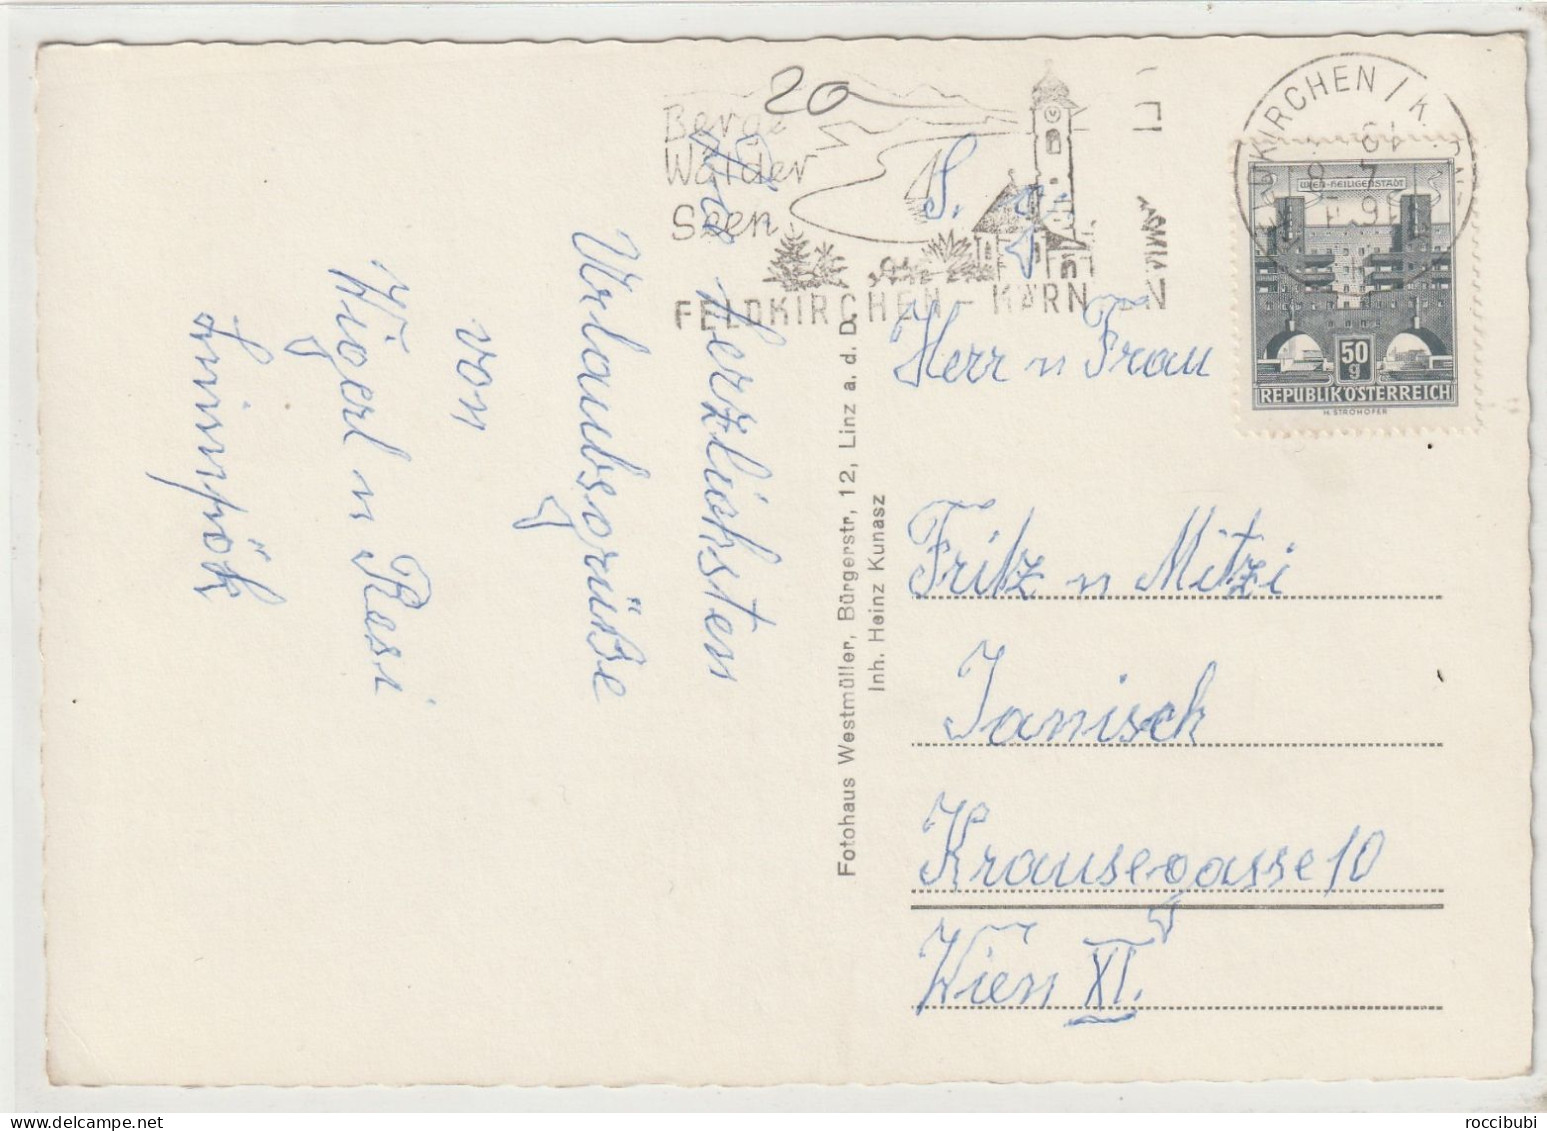 20
Berge
Wälder
Seen
FELDKIRCHEN - KÄRNTEN
KIRCHEN / K
WIEN-HEILIGENSTADT
50
g
REPUBLIK ÖSTERREICH
H. STROHOFER
Die herzlichsten
Urlaubsgrüße
von
Fotohaus Westmüller, Bürgerstr, 12, Linz a. d. D.
Inh. Heinz Kunasz
S. g.
Herr u Frau
Fritz u Mitzi
Janisch
Krausegasse 10
Wien XI.
roccibubi